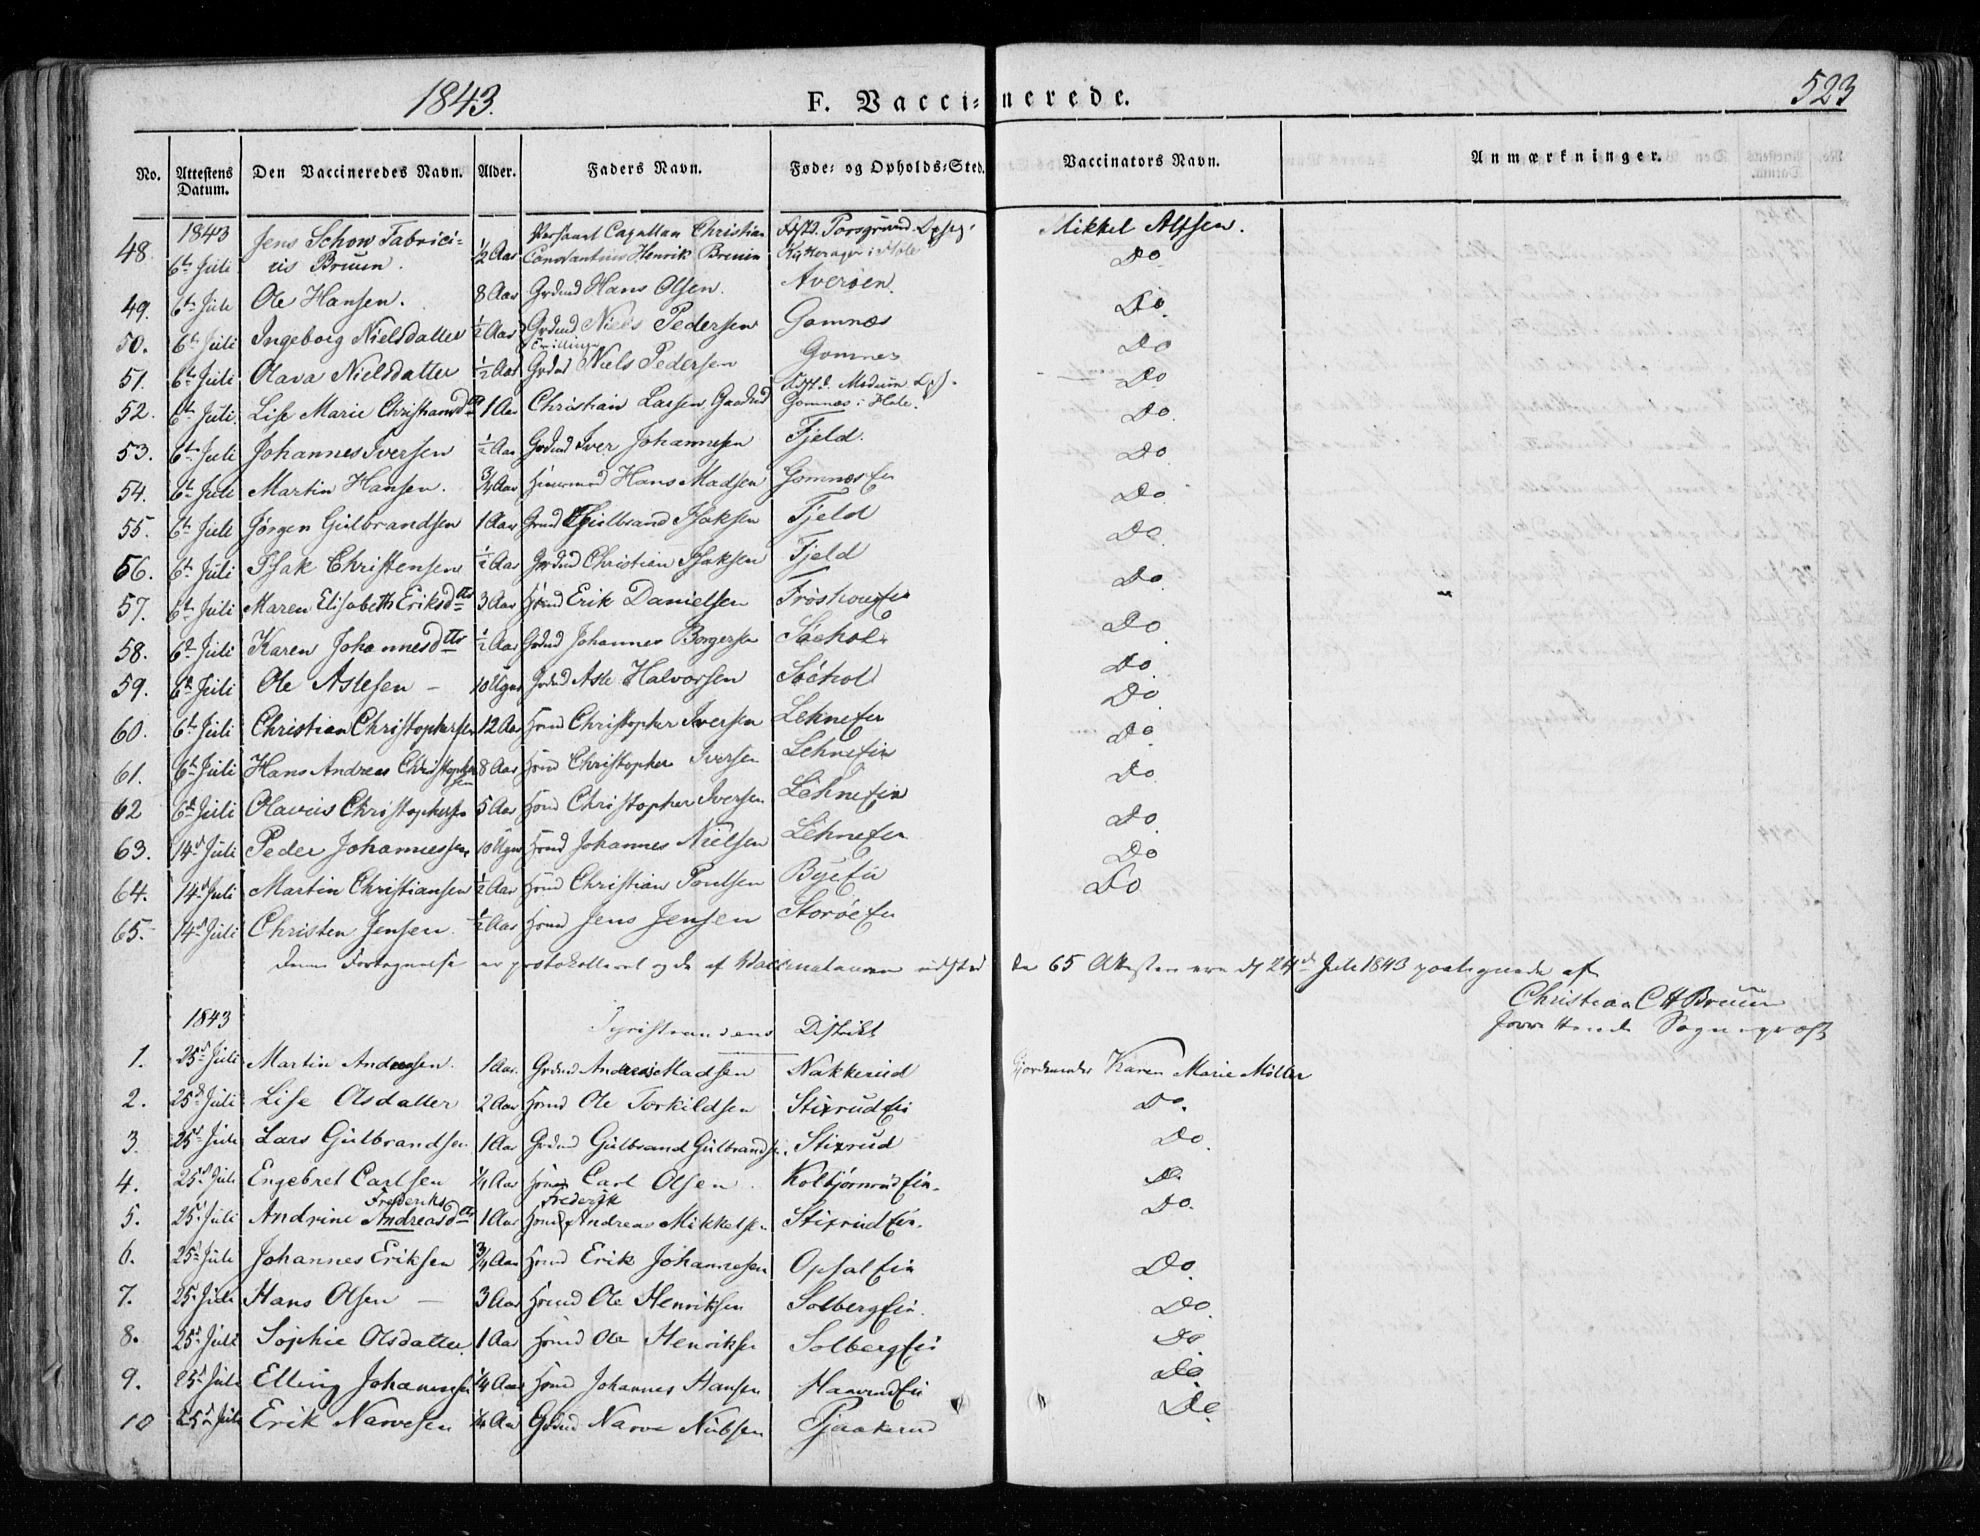 1843.
F. Vaccinerede.
523
No. Attestens Datum. Den Vaccineredes Navn. Alder. Faders Navn. Føde- og Opholds-Sted. Vaccinators Navn. Anmærkninger.
48. 1843 6te Juli Jens Schow Fabricius Bruun. ½ Aar Personel Capellan Christian Constantius Henrik Bruun Mikkel Alfsen. Do
49. 6te Juli Ole Hansen. 8 Aar Grdmd Hans Olsen. Averøen. Do
50. 6te Juli Ingeborg Nielsdatter ½ Aar Grdmd Niels Pedersen Gomnæs Do
Tvillinge
51. 6te Juli Olava Nielsdatter ½ Aar Grdmd Niels Pedersen Gomnes Do
52. 6te Juli Lise Marie Christiansdtr 1 Aar Christian Larsen Gaardmd Modum Gomnæs i Hole. Do
53. 6te Juli Johannes Iversen ½ Aar Grdmd Iver Johannesen Fjeld. Do
54. 6te Juli Martin Hansen. ¾ Aar Huusmand Hans Madsen Gomnæs Ei Do
55. 6te Juli Jørgen Gulbrandsen 1 Aar Grmd Gulbrand Isaksen Fjeld Do
56. 6te Juli Isak Christensen ½ Aar Grdmd Christian Isaksen Fjeld Do
57. 6te Juli Maren Elisabeth Eriksdtr 3 Aar Hsmd Erik Danielsen Frøshoug Ei Do
58. 6te Juli Karen Johannesdtr ½ Aar Grdmd Johannes Borgersen Søehol Do
59. 6te Juli Ole Aslesen — 10 Uger Grdmd Asle Halvorsen Søehold Do
60. 6te Juli Christian Christophersen 12 Aar Hsmd Christopher Iversen Lehne Ei Do
61. 6te Juli Hans Andreas Christophersen 8 Aar Hsmd Christopher Iversen Lehne Ei Do
62 6te Juli Olavus Christophersen 5 Aar Hsmd Christopher Iversen Lehne Ei Do
63. 14de Juli Peder Johannessen 10 Uger Hsmd Johannes Nielsen Lehne Ei Do
64. 14de Juli Martin Christiansen ½ Aar Hsmd Christian Poulsen Bye Ei Do
65. 14de Juli Christen Jensen. ½ Aar Hsmd Jens Jensen Storøe Ei
Denne Fortegnelse er protokolleret og de af Vaccinateuren udsted de 65 Attester ere d 24de Juli 1843 paategnede af
Christian C H Bruun
Sogneprest
1843 Tyristrandens Distrikt
1. 25de Juli Martin Andersen. 1 Aar. Grdmd Anders Madsen Nakkerud Gjordemoder Karen Marie Møller
2. 25de Juli Lise Olsdatter 2 Aar Hsmd Ole Torkildsen Stixrud Ei Do.
3. 25de Juli Lars Gulbrandsen 1 Aar Grdmd Gulbrand Gulbrands. Stixrud Do.
4. 25de Juli Engebret Carlsen ¼ Aar Hsmd Carl Olsen. Kolbjørnrud Ei. Do.
5. 25de Juli Andrine Frederiks Andreasdtr 1 Aar Hsmd Frederik Andreas Mikkelsen Stixrud Ei. Do.
6. 25de Juli Johannes Eriksen ¾ Aar Hsmd Erik Johannesen Opsal Ei Do.
7. 25de Juli Hans Olsen — 3 Aar Hsmd Ole Henriksen Solberg Ei. Do.
8. 25de Juli Sophie Olsdatter 1 Aar Hsmd Ole Henriksen Solberg Ei Do
9. 25de Juli Elling Johannesen ¼ Aar Hsmd Johannes Hansen Haverud Ei Do.
10 25de Juli Erik Narvesen ¼ Aar Grdmd Narve Nubsen Pjaakerud Do.